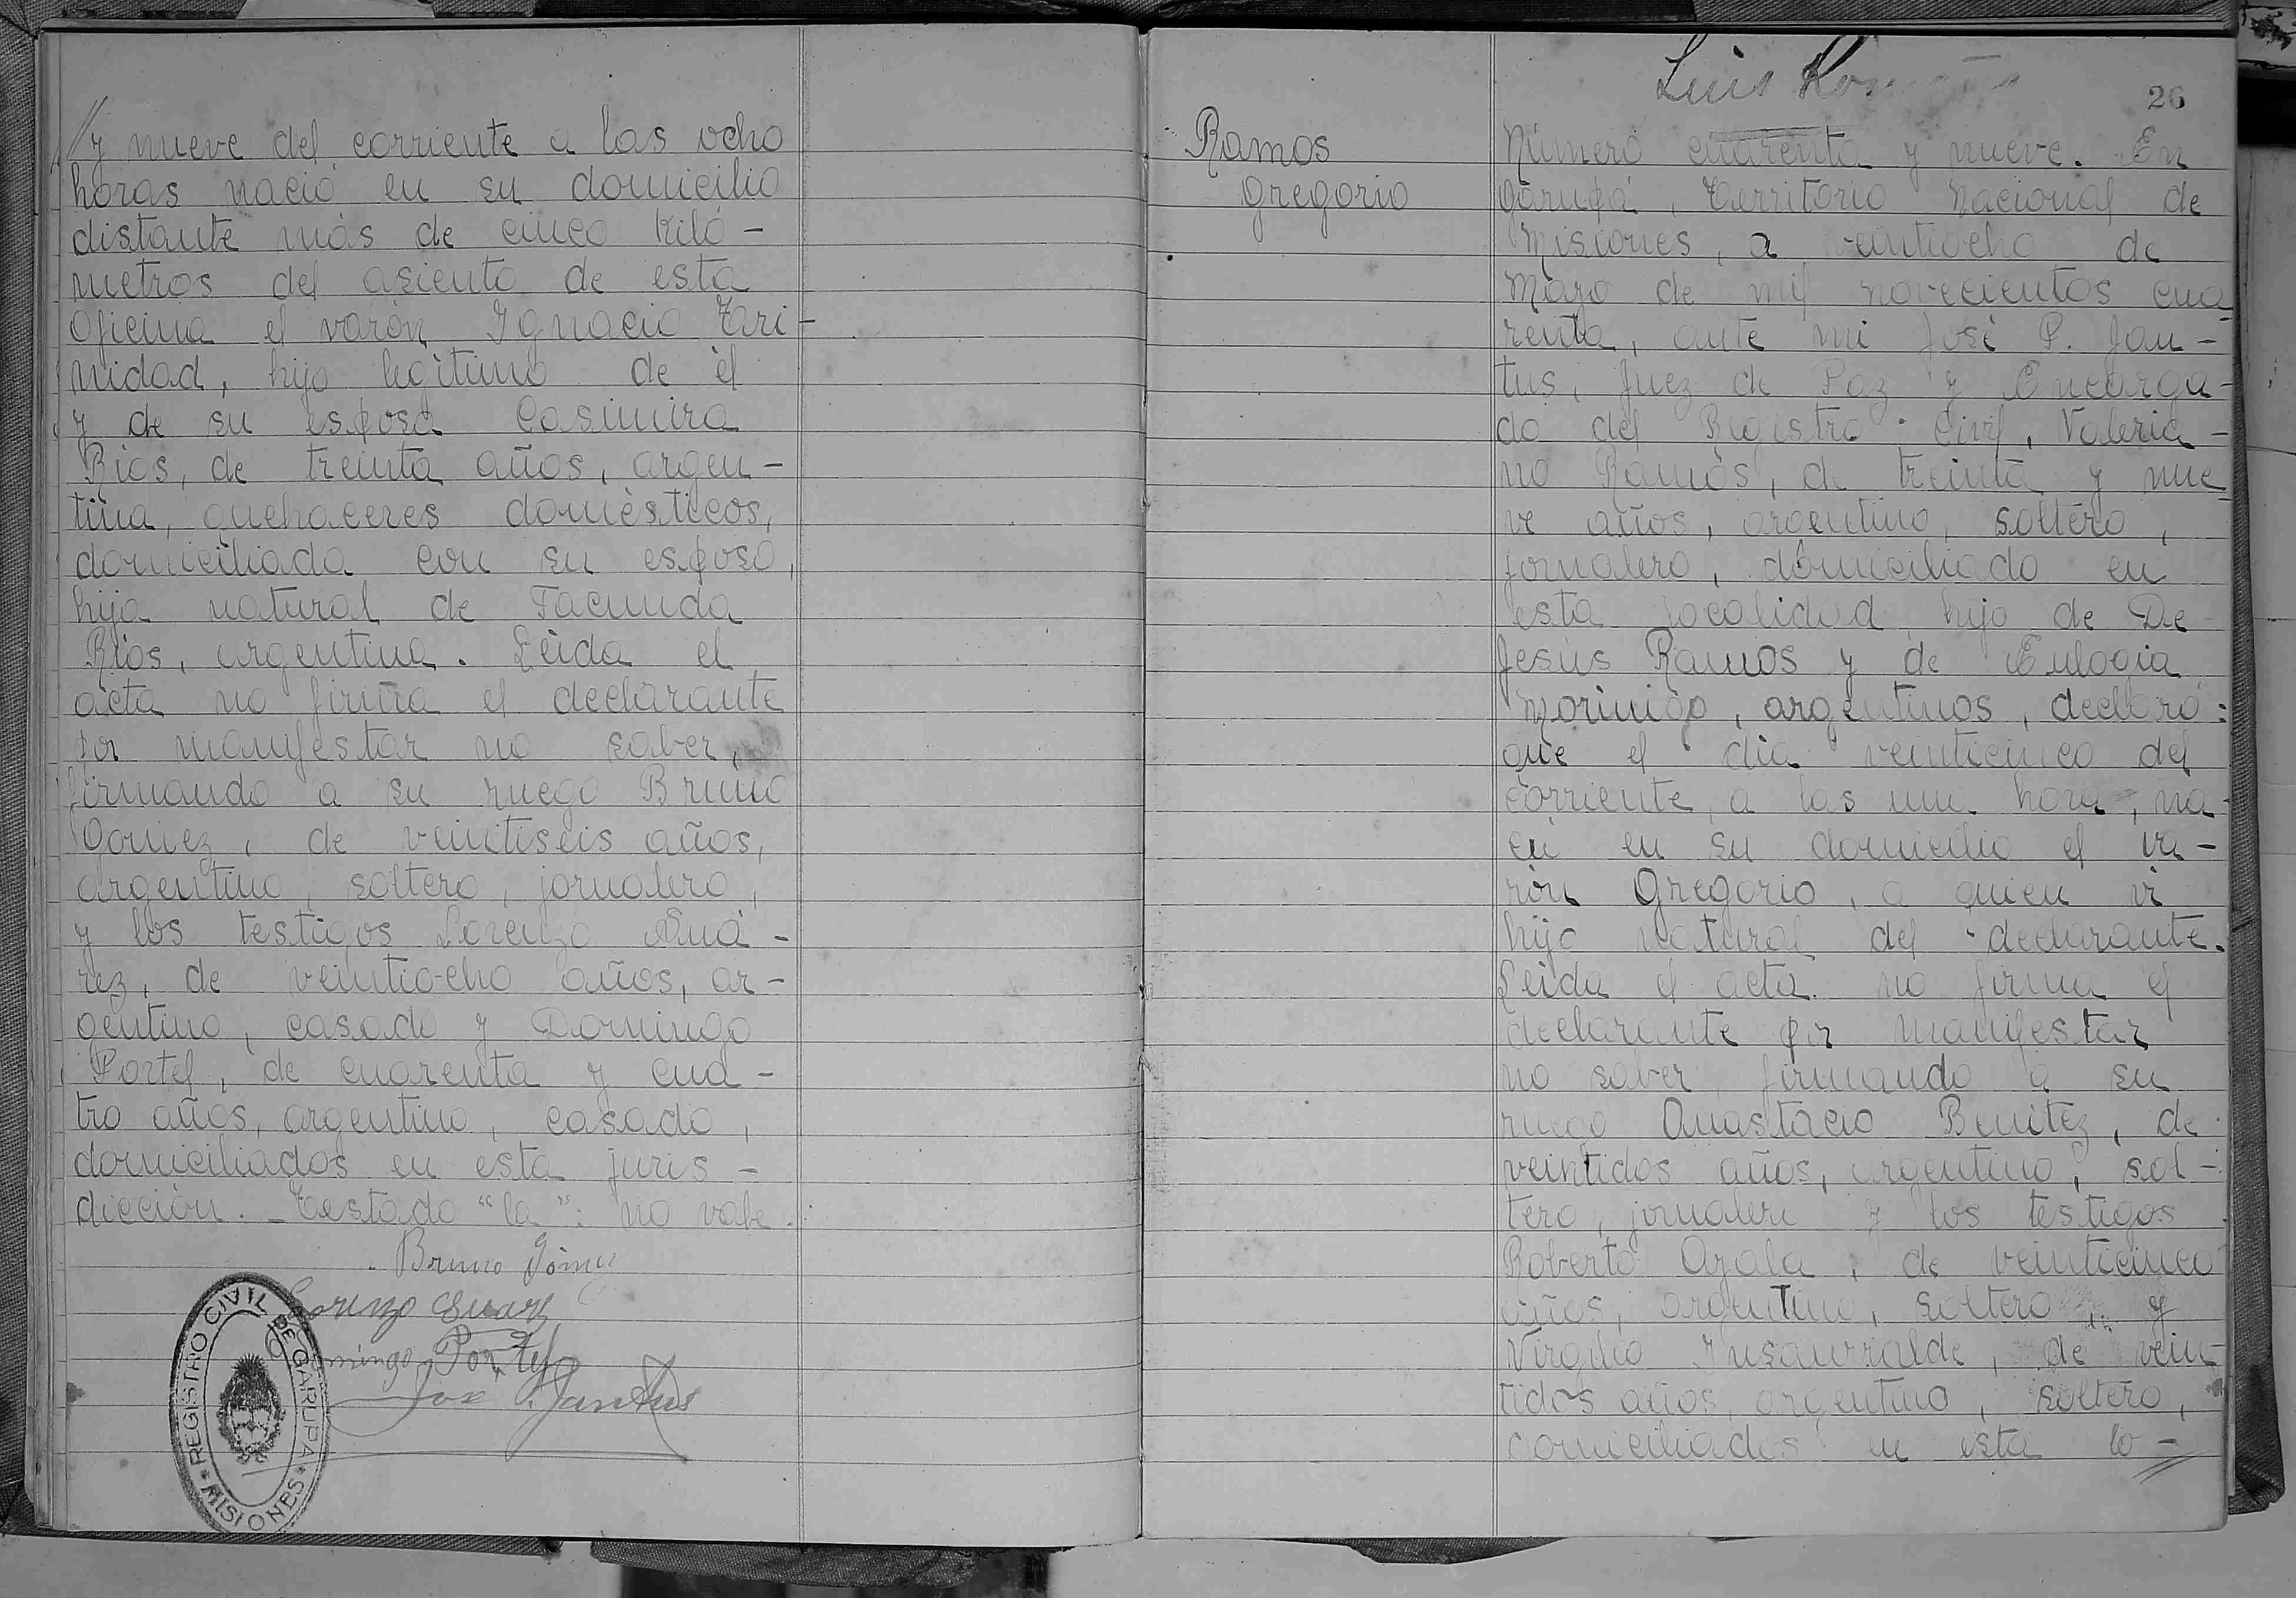 // y nueve del corriente a las ocho
horas nació en su domicilio
distante más de cinco kiló-
metros del asiento de esta
Oficina el varón Ignacio Tri-
nidad, hijo legítimo de él
y de su esposa Casimira
Rios, de treinta años, argen-
tina, quehaceres domésticos,
domiciliada con su esposo,
hija natural de Facunda
Rios, argentina. Leida el
acta no firma el declarante
por manifestar no saber,
firmando a su ruego Bruno
Gomez, de veintiseis años,
argentino, soltero, jornalero,
y los testigos Lorenzo Suá-
rez, de veintiocho años, ar-
gentino, casado y Domingo
Portel, de cuarenta y cua-
tro años, argentino, casado,
domiciliados en esta juris-
dicción. - Testado "la": no vale.
Bruno Gómez
Lorenzo Suarez
Domingo Portel
Jose P. Jantus
REGISTRO CIVIL DE GARUPA
* MISIONES *
Luis
26
Ramos
Gregorio
Número cuarenta y nueve. En
Garupá, Territorio Nacional de
Misiones, a veintiocho de
Mayo de mil novecientos cua
renta, ante mi José P. Jan-
tus, Juez de Paz y Encarga-
do del Registro Civil, Valeria-
no Ramos, de treinta y nue
ve años, argentino, soltero,
jornalero, domiciliado en
esta localidad, hijo de De
Jesús Ramos y de Eulogia
Morinigo, argentinos, declaró:
que el día veinticinco del
corriente, a las una hora, na-
ció en su domicilio el va-
rón Gregorio, a quien vi
hijo natural del declarante.
Leida el acta no firma el
declarante por manifestar
no saber firmando a su
ruego Anastacio Benitez, de
veintidos años, argentino, sol-
tero, jornalero y los testigos
Roberto Ayala, de veinticinco
años, argentino, soltero, y
Virgilio Insaurralde, de vein-
tidos años, argentino, soltero,
domiciliados en esta lo- //